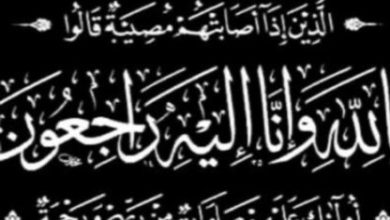 الَّذِينَ إِذَا أَصَابَتْهُمْ مُصِيبَةٌ قَالُوا
لِلَّهِ وَإِنَّا إِلَيْهِ رَاجِعُونَ
مِنْ رَبِّهِمْ وَرَحْمَةٌ